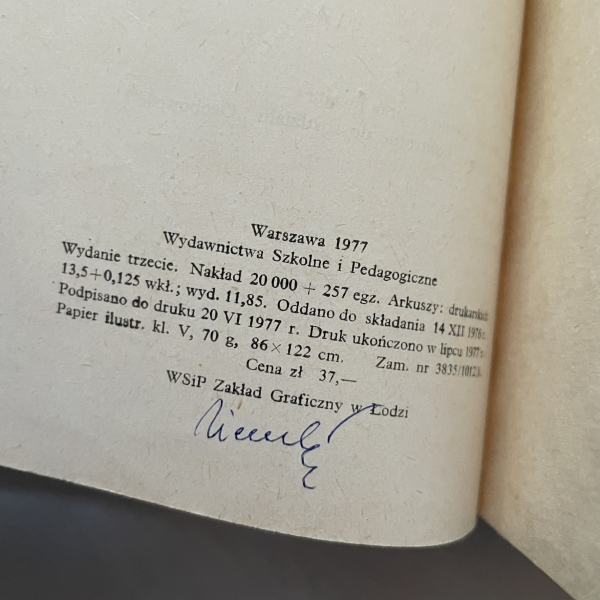 Warszawa 1977
Wydawnictwa Szkolne i Pedagogiczne
Wydanie trzecie. Nakład 20 000 + 257 egz. Arkuszy: drukarskich
13,5+0,125 wkł.; wyd. 11,85. Oddano do składania 14 XII 1976 r.
Podpisano do druku 20 VI 1977 r. Druk ukończono w lipcu 1977 r.
Papier ilustr. kl. V, 70 g, 86 × 122 cm. Zam. nr
Cena zł 37,—
WSiP Zakład Graficzny w Łodzi